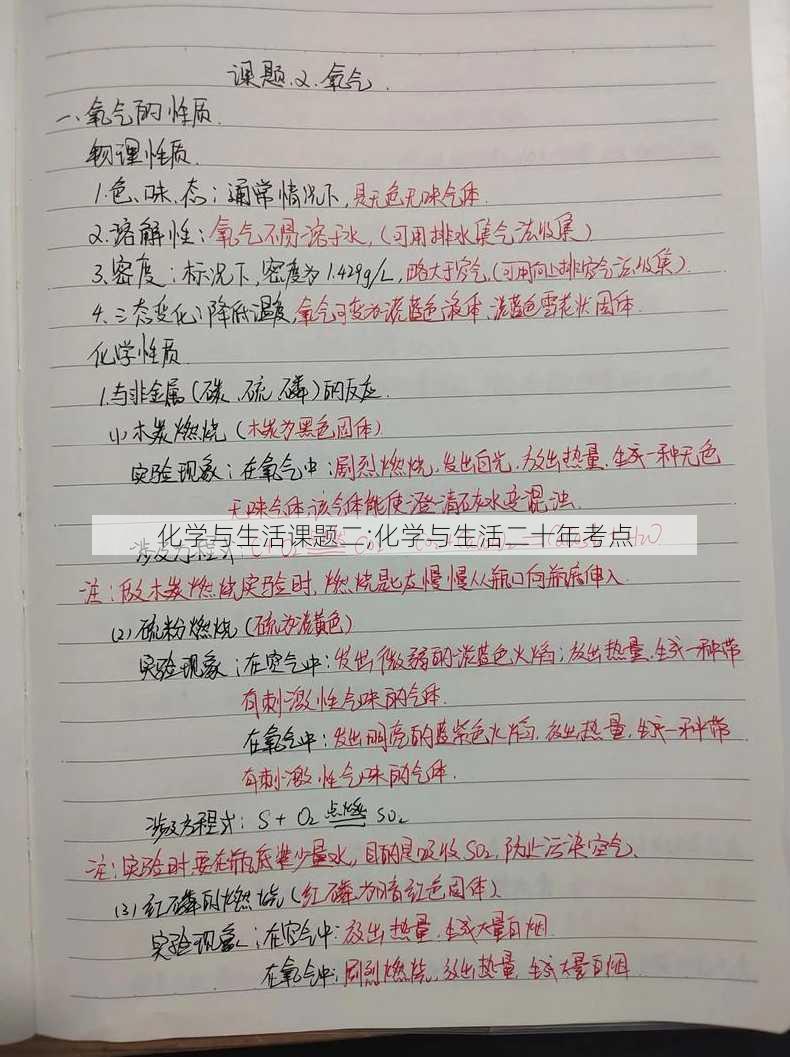 课题.2.氧气.
一、氧气的性质.
物理性质.
1.色、味、态：通常情况下,是无色无味气体.
2.溶解性：氧气不易溶于水,(可用排水集气法收集)
3.密度：标况下,密度为1.429g/L,略大于空气.(可用向上排空气法收集).
4.三态变化：降低温度,氧气可变为淡蓝色液体.淡蓝色雪花状固体.
化学性质.
1.与非金属(碳、硫、磷)的反应.
(1)木炭燃烧(木炭为黑色固体)
实验现象：在氧气中：剧烈燃烧,发出白光,放出热量.生成一种无色
无味气体,该气体能使澄清石灰水变混浊.
化学与生活课题二;化学与生活二十年考点
涉及方程式：
注：做木炭燃烧实验时,燃烧匙应慢慢从瓶口向瓶底伸入.
(2)硫粉燃烧(硫为淡黄色)
实验现象：在空气中：发出微弱的淡蓝色火焰；放出热量.生成一种带
有刺激性气味的气体.
在氧气中：发出明亮的蓝紫色火焰.放出热量,生成一种带
有刺激性气味的气体.
涉及方程式：S + O₂ 点燃 SO₂
注：实验时要在瓶底装少量水,目的是吸收SO₂,防止污染空气.
(3)红磷的燃烧(红磷为暗红色固体)
实验现象：在空气中：放出热量.生成大量白烟.
在氧气中：剧烈燃烧,放出热量,生成大量白烟.